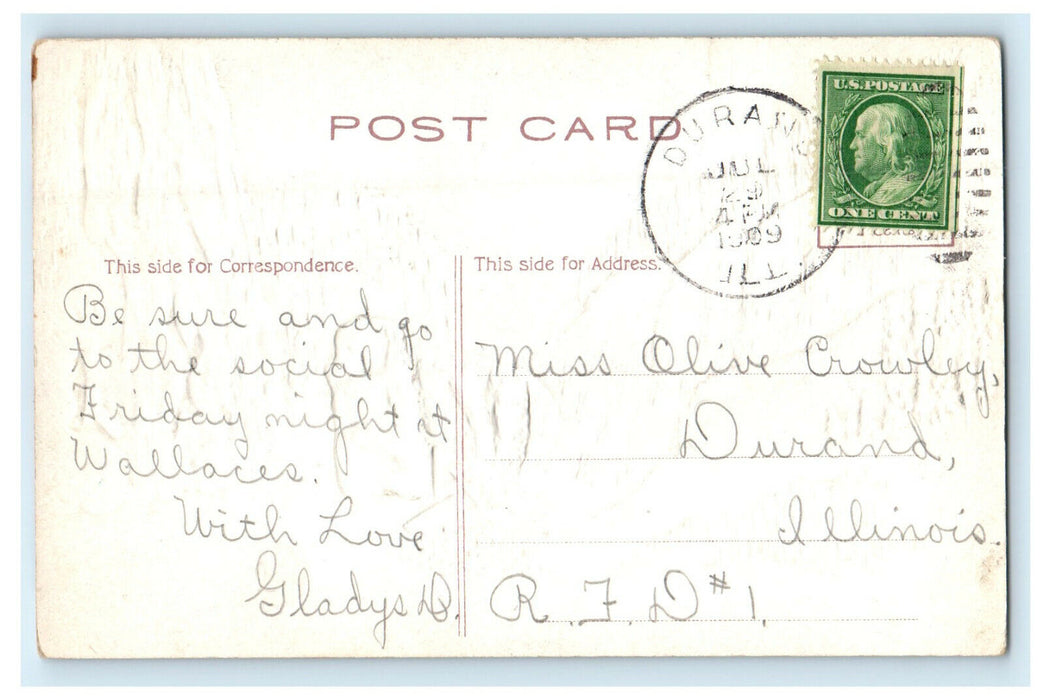 POST CARD
DURAND
JUL
29
4 PM
1909
ILL.
U.S. POSTAGE
ONE CENT
This side for Correspondence.
Be sure and go
to the social
Friday night at
Wallaces.
With Love
Gladys D.
This side for Address.
Miss Olive Crowley,
Durand,
Illinois.
R. F. D #1.